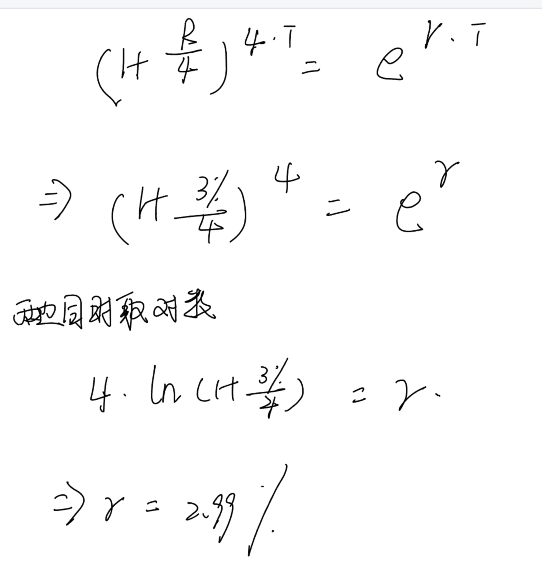 (1+R/4)^{4·T} = e^{r·T}
⇒ (1+3%/4)^4 = e^r
两边同时取对数
4·ln(1+3%/4) = r.
⇒ r = 2.99%